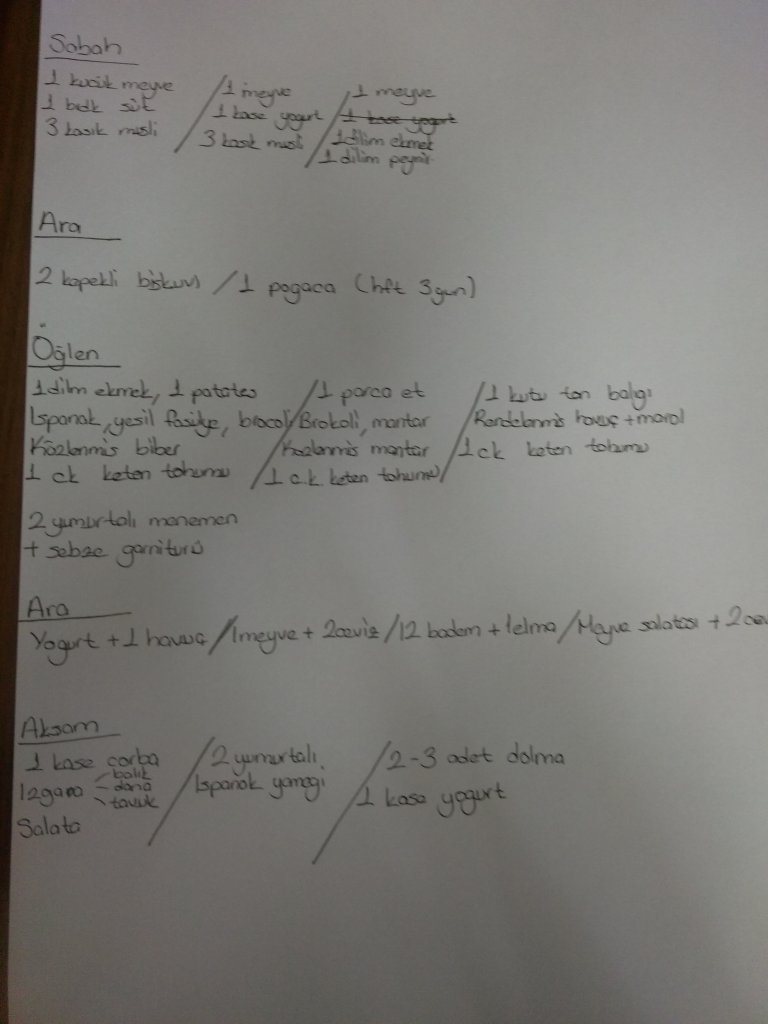 Sabah
1 kucuk meyve / 1 meyve / 1 meyve
1 brdk süt / 1 kase yogurt / 1 kase yogurt
3 kasık musli / 3 kasık musli / 1 dilim ekmek
1 dilim peynir
Ara
2 kepekli biskuvi / 1 pogaca (hft 3 gun)
Öğlen
1 dilm ekmek, 1 patates / 1 parca et / 1 kutu ton balıgı
Ispanak, yesil fasulye, brocoli / Brokoli, mantar / Rendelenmis havuç + marol
Közlenmis biber / Kozlenmis mantar / 1 ck keten tohumu
1 ck keten tohumu / 1 c.k. keten tohumu /
2 yumurtalı menemen
+ sebze garnituru
Ara
Yogurt + 1 havuç / 1 meyve + 2 ceviz / 12 badem + 1 elma / Meyve salatası + 2 cev
Aksam
1 kase corba / 2 yumurtalı / 2-3 adet dolma
balık
Izgara - dana / Ispanak yemegi / 1 kase yogurt
tavuk
Salata